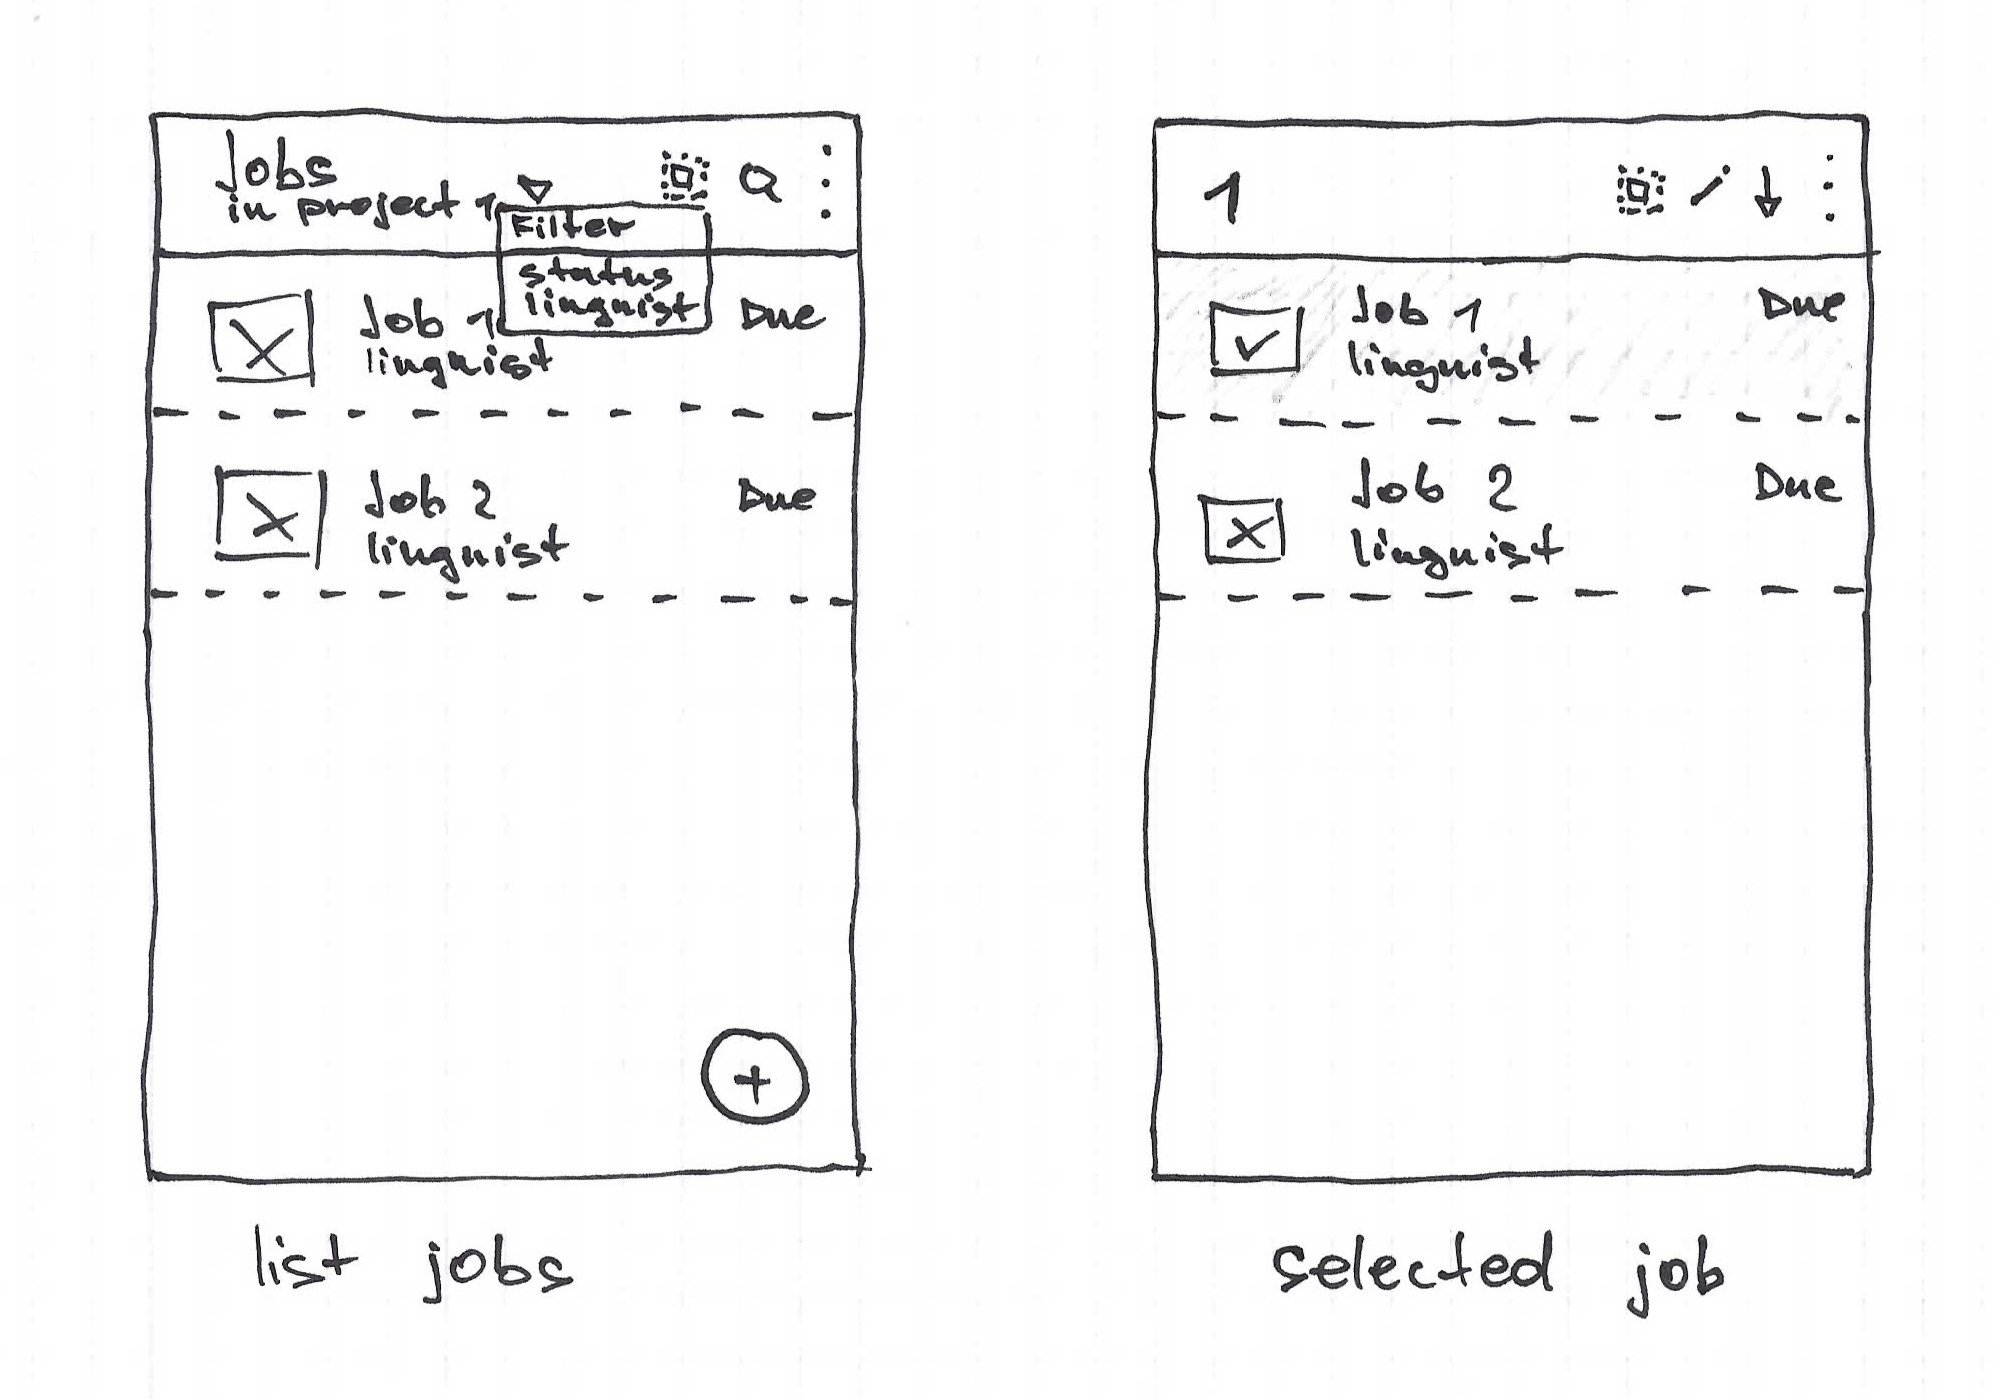 Jobs
in project 1
Filter
status
linguist
Job 1
linguist
Due
Job 2
linguist
Due
list jobs
1
Job 1
linguist
Due
Job 2
linguist
Due
selected job